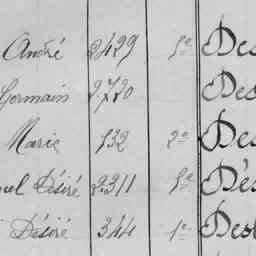 André 2429 5e Des
Germain 2720 Des
Marie 532 2e Des
uel Désiré 2311 5e Dés
Désiré 344 1e Desl